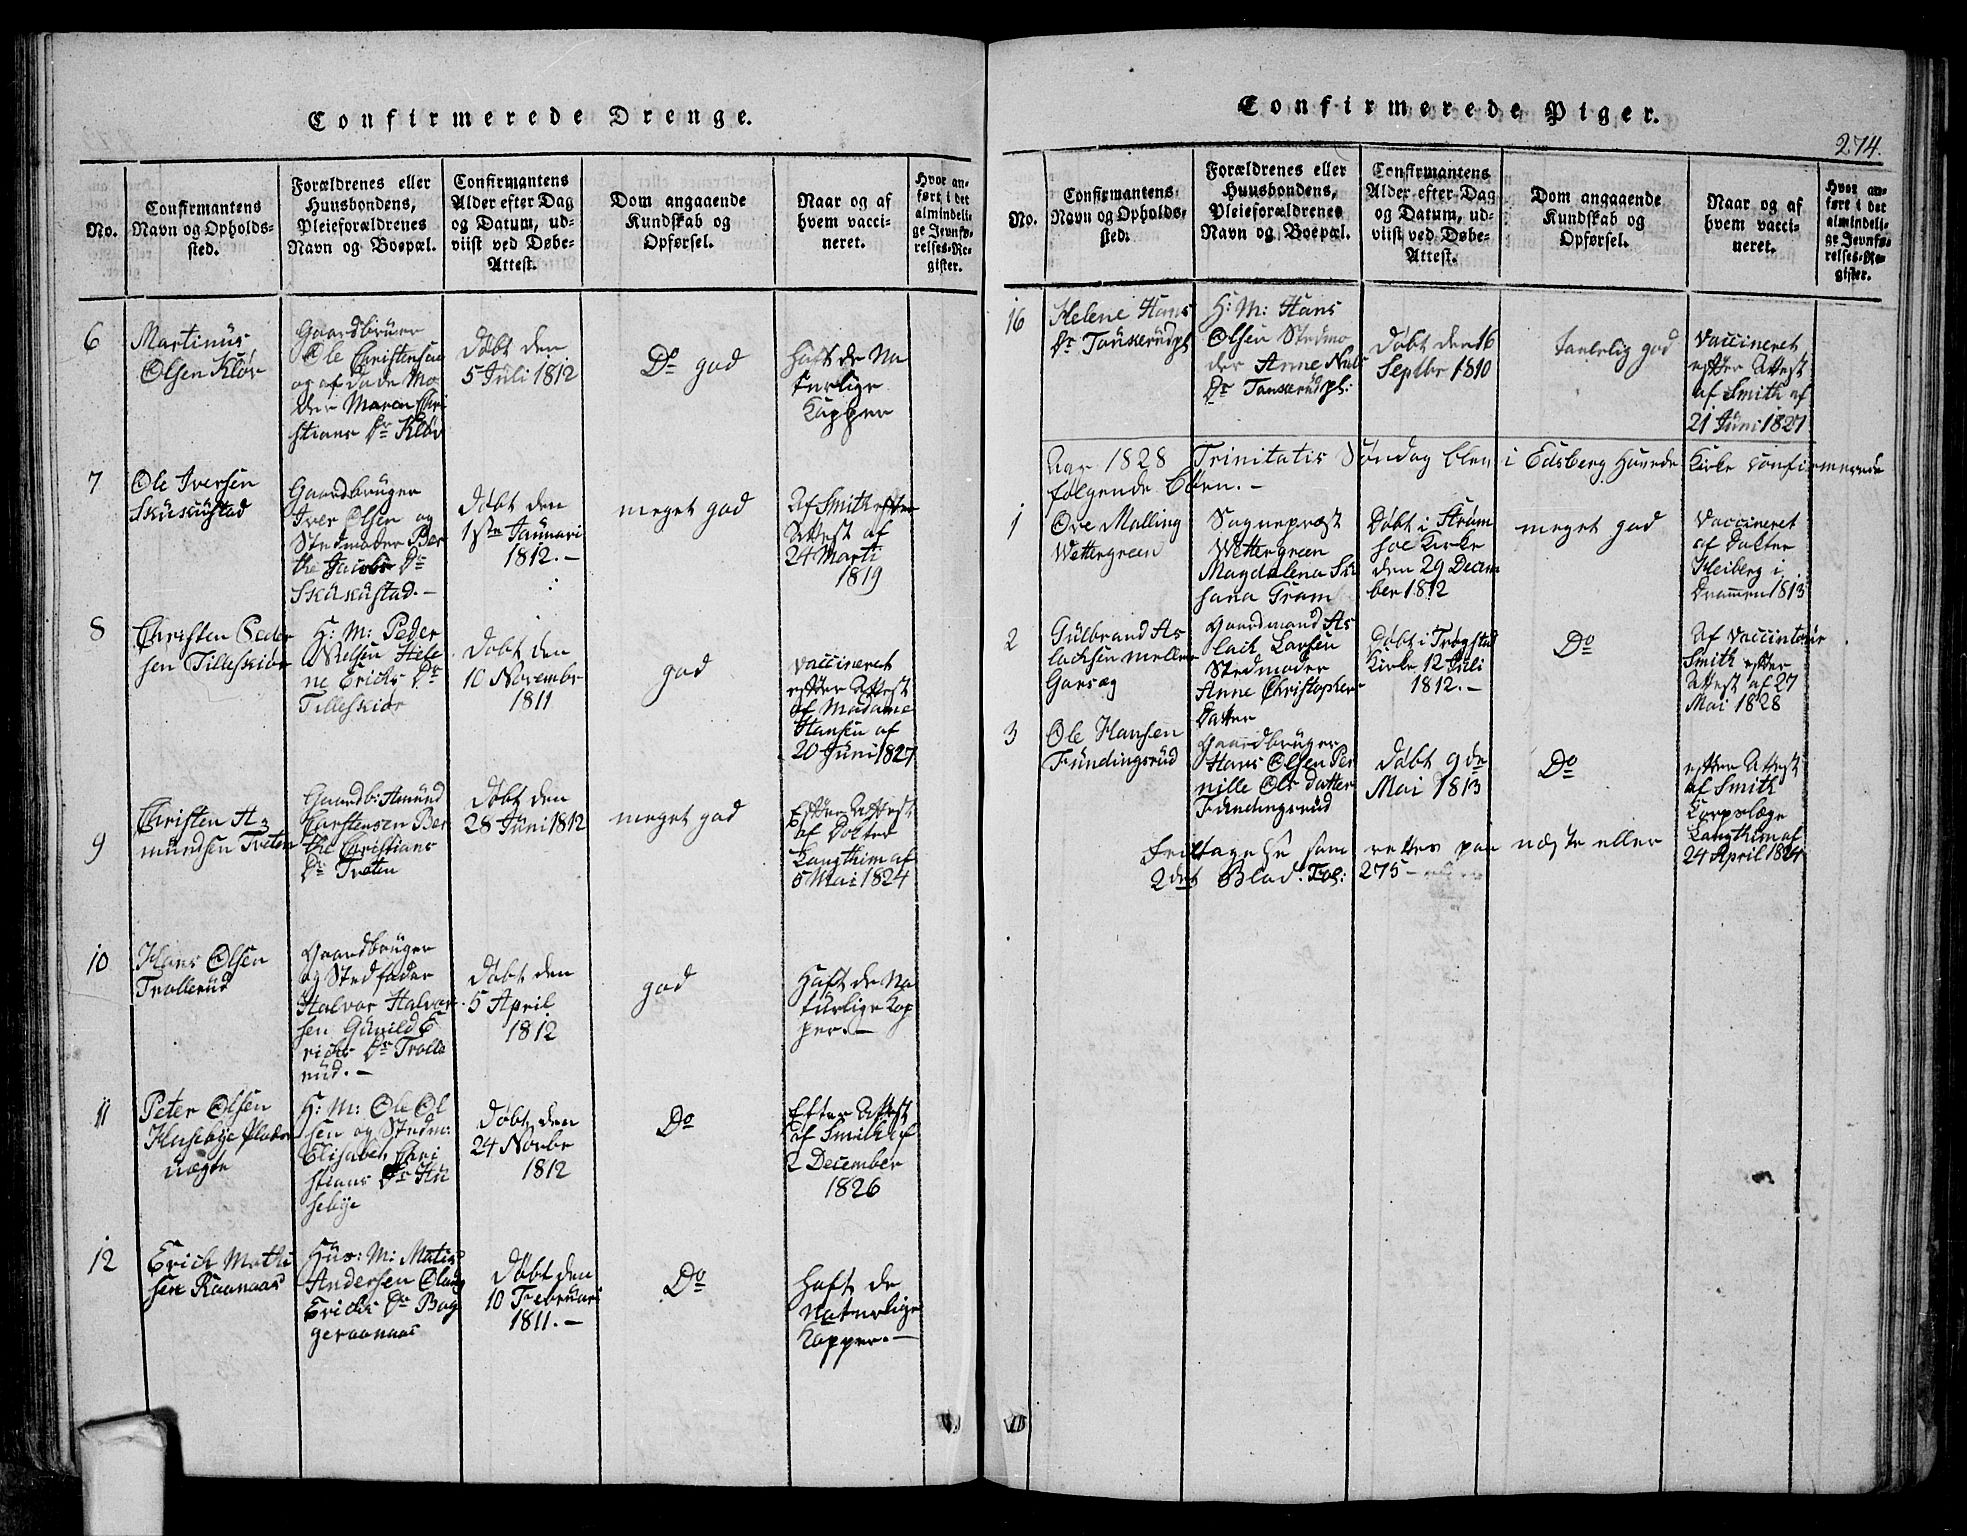 Confirmerede Drenge.
No.
Confirmantens
Navn og Opholds-
sted.
Forældrenes eller
Huusbondens,
Pleieforældrenes
Navn og Boepæl.
Confirmantens
Alder efter Dag
og Datum, ud-
viist ved Døbe-
Attest.
Dom angaaende
Kundskab og
Opførsel.
Naar og af
hvem vacci-
neret.
Hvor an-
ført i det
almindeli-
ge Jevnfø-
relses-Re-
gister.
6
Martinus
Olsen Kløv
Gaardbruer
Ole Christensen
og afdøde Mo
der Maren Chri
stians Dr Kløv
Døbt den
5 Juli 1812
Do god
Haft de Na
turlige
Kopper
7
Ole Iversen
Skukustad
Gaardbruger
Iver Olsen og
Stedmoder Ber
the Jacobs Dr
Skukustad.-
Døbt den
1ste Januari
1812.-
meget god
Af Smith efter
Attest af
24 Marti
1819
8
Christen Peder
sen Tilleskiør
H: M: Peder
Nielsen Hele
ne Erichs Dr
Tilleskiør
Døbt den
10 Novembr
1811
god
vaccineret
efter Attest
af Madame
Hansen af
20 Juni 1827
9
Christen A-
mundsen Tveten
Gaardb: Amund
Carstensen Ber
the Christians
Dr Tveten
Døbt den
28 Juni 1812
meget god
Efter Attest
af Docter
Langthim af
5 Mai 1824
10
Hans Olsen
Trollerud
Gaardbruger
og Stedfader
Halvor Halvor-
sen Gunild E
richs Dr Trolle
rud.-
Døbt den
5 April
1812
god
Haft de Na
turlige Kop
per.-
11
Peter Olsen
Husebye Plads
H: M: Ole Ol
sen og Stedm:
Elisabeth Chri
stians Dr Hu
sebye
Døbt den
24 Novbr
1812
Do
Efter Attest
af Smith af
2 December
1826
12
Erich Mathi
sen Raanaas
Hus: M: Matis
Andersen Olaug
Erichs Dr Bag
geraanaas
Døbt den
10 Februari
1811.-
Do
Haft de
Naturlige
Kopper.-
Confirmerede Piger.
274.
No.
Confirmantens
Navn og Opholds-
sted.
Forældrenes eller
Huusbondens,
Pleieforældrenes
Navn og Boepæl.
Confirmantens
Alder efter Dag
og Datum, ud-
viist ved Døbe-
Attest.
Dom angaaende
Kundskab og
Opførsel.
Naar og af
hvem vacci-
neret.
Hvor an-
ført i det
almindeli-
ge Jevnfø-
relses-Re-
gister.
16
Helene Hans
Dr
H: M: Hans
Olsen Stedmo
der Anne Niels
Dr
Døbt den 16
Septbr 1810
taalelig god
vaccineret
efter Attest
af Smith af
21 Juni 1827
Aar 1828 Trinitatis Søndag blev i Edsberg Hovede Kirke confirmerede
følgende Børn.-
1
Ove Malling
Wettergreen
Sognepræst
Wettergreen
Magdalena Su
sana Gram
Døbt i Strøm
søe Kirke
den 29 Decem
ber 1812
meget god
vaccineret
af Docter
Heiberg i
Drammen 1813
2
Gulbrand As
lachsen Mellem
Garsæg
Gaardmand As
lach Larsen
Stedmoder
Anne Christopher
Datter
Døbt i Trøgstad
Kirke 12 Juli
1812.-
Do
Af vaccinteur
Smith efter
Attest af 27
Mai 1828
3
Ole Hansen
Fundingsrud
Gaardbruger
Hans Olsen Per
nille Ols datter
Fundingsrud
Døbt 9de
Mai 1813
Do
efter Attest
af Smith
Corpslæge
Langthim af
24 April 1824
som rettes paa næste eller
2det Blad. Fol: 275-